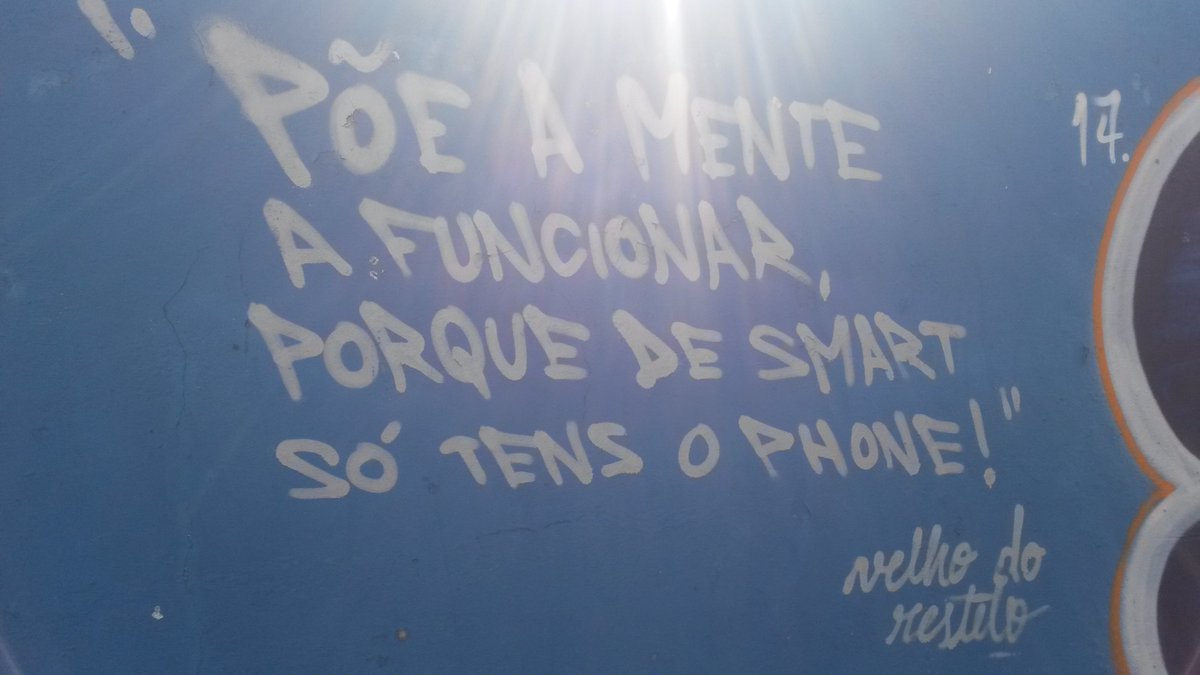 "PÕE A MENTE
A FUNCIONAR,
PORQUE DE SMART
SÓ TENS O PHONE!"
velho do
restelo
17.